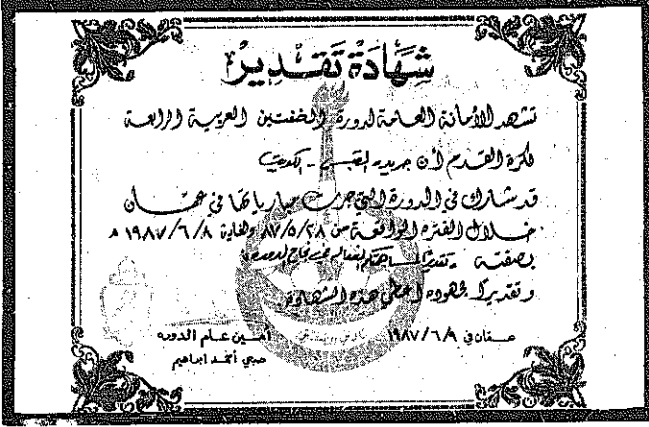 شهادة تقدير
تشهد الأمانة العامة لدورة الخفتين العربية الرابعة
لكرة القدم أن جريدة القبس - الكويت
قد شارك في الدورة التي جرت مبارياتها في عمّان
خلال الفترة الواقعة من ٨٧/٥/٢٨ ولغاية ١٩٨٧/٦/٨ م
بصفته - تقديرًا
وتقديرًا لجهوده أعطي هذه الشهادة.
عمان في ١٩٨٧/٦/٩
أمين عام الدورة
صبحي أحمد ابراهيم